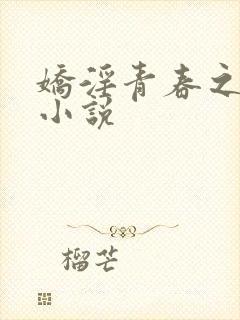 嬌淫青春之
小説
榴芒